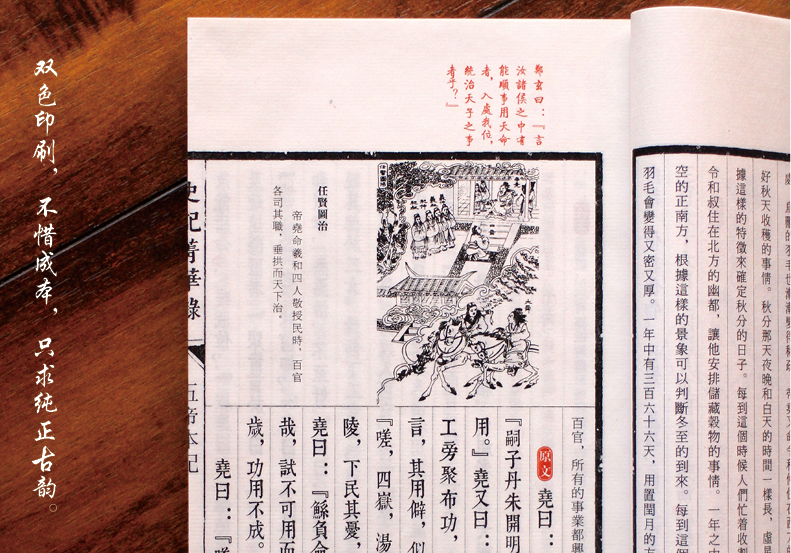 双色印刷，不惜成本，只求纯正古韵。
鄭玄曰：『言
汝諸侯之中有
能順事用天命
者，入處我位，
統治天子之事
者乎？』
好秋天收穫的事情。秋分那天夜晚和白天的時間一樣長，虛星
據這樣的特徵來確定秋分的日子。每到這個時候人們忙着收割
令和叔住在北方的幽都，讓他安排儲藏穀物的事情。一年之
空的正南方，根據這樣的景象可以判斷冬至的到來。每到這
羽毛會變得又密又厚。一年中有三百六十六天，用置閏月的
任賢圖治
帝堯命羲和四人敬授民時，百官
各司其職，垂拱而天下治。
百官，所有的事業都興
原文 堯曰：
『嗣子丹朱開明
用。』堯又曰：
工旁聚布功，
言，其用僻，似
『嗟，四嶽，湯
陵，下民其憂，
堯曰：『鯀負命
哉，試不可用而
歲，功用不成。
堯曰：『嗟
史記菁華錄
五帝本紀